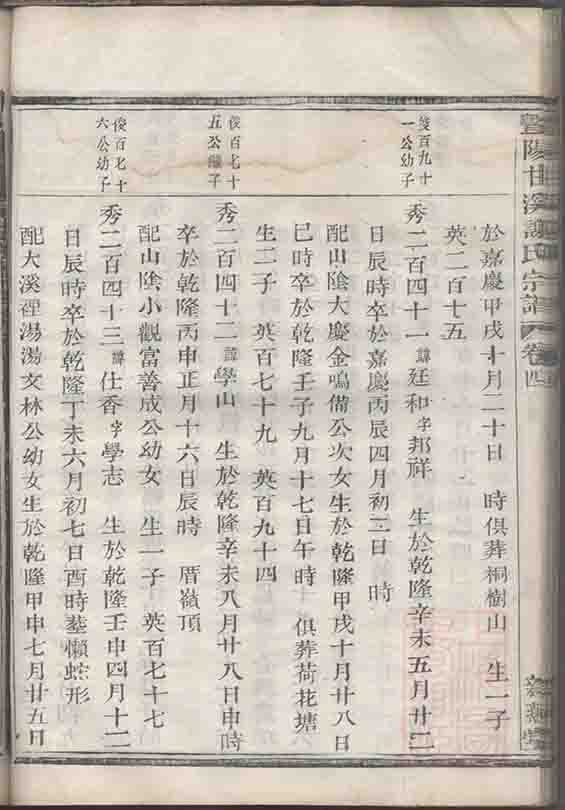 暨陽甘溪謝氏宗譜 卷四
於嘉慶甲戌十月二十日 時俱葬桐樹山 生一子
英二百七五
俊百九十一公幼子
秀二百四十一 諱廷和字邦祥 生於乾隆辛未五月廿二
日辰時卒於嘉慶丙辰四月初三日 時
配山陰大慶金鳴備公次女生於乾隆甲戌十月廿八日
巳時卒於乾隆壬子九月十七日午時 俱葬荷花塘
生二子 英百七十九 英百九十四
俊百七十五公 子
秀二百四十二 諱學山 生於乾隆辛未八月廿八日申時
卒於乾隆丙申正月十六日辰時 厝嶺頂
配山陰小觀富善成公幼女 生一子 英百七十七
俊百七十六公幼子
秀二百四十三 諱仕香字學志 生於乾隆壬申四月十二
日辰時卒於乾隆丁未六月初七日酉時塟懶蛇形
配大溪裡湯湯文林公幼女生於乾隆甲申七月廿五日